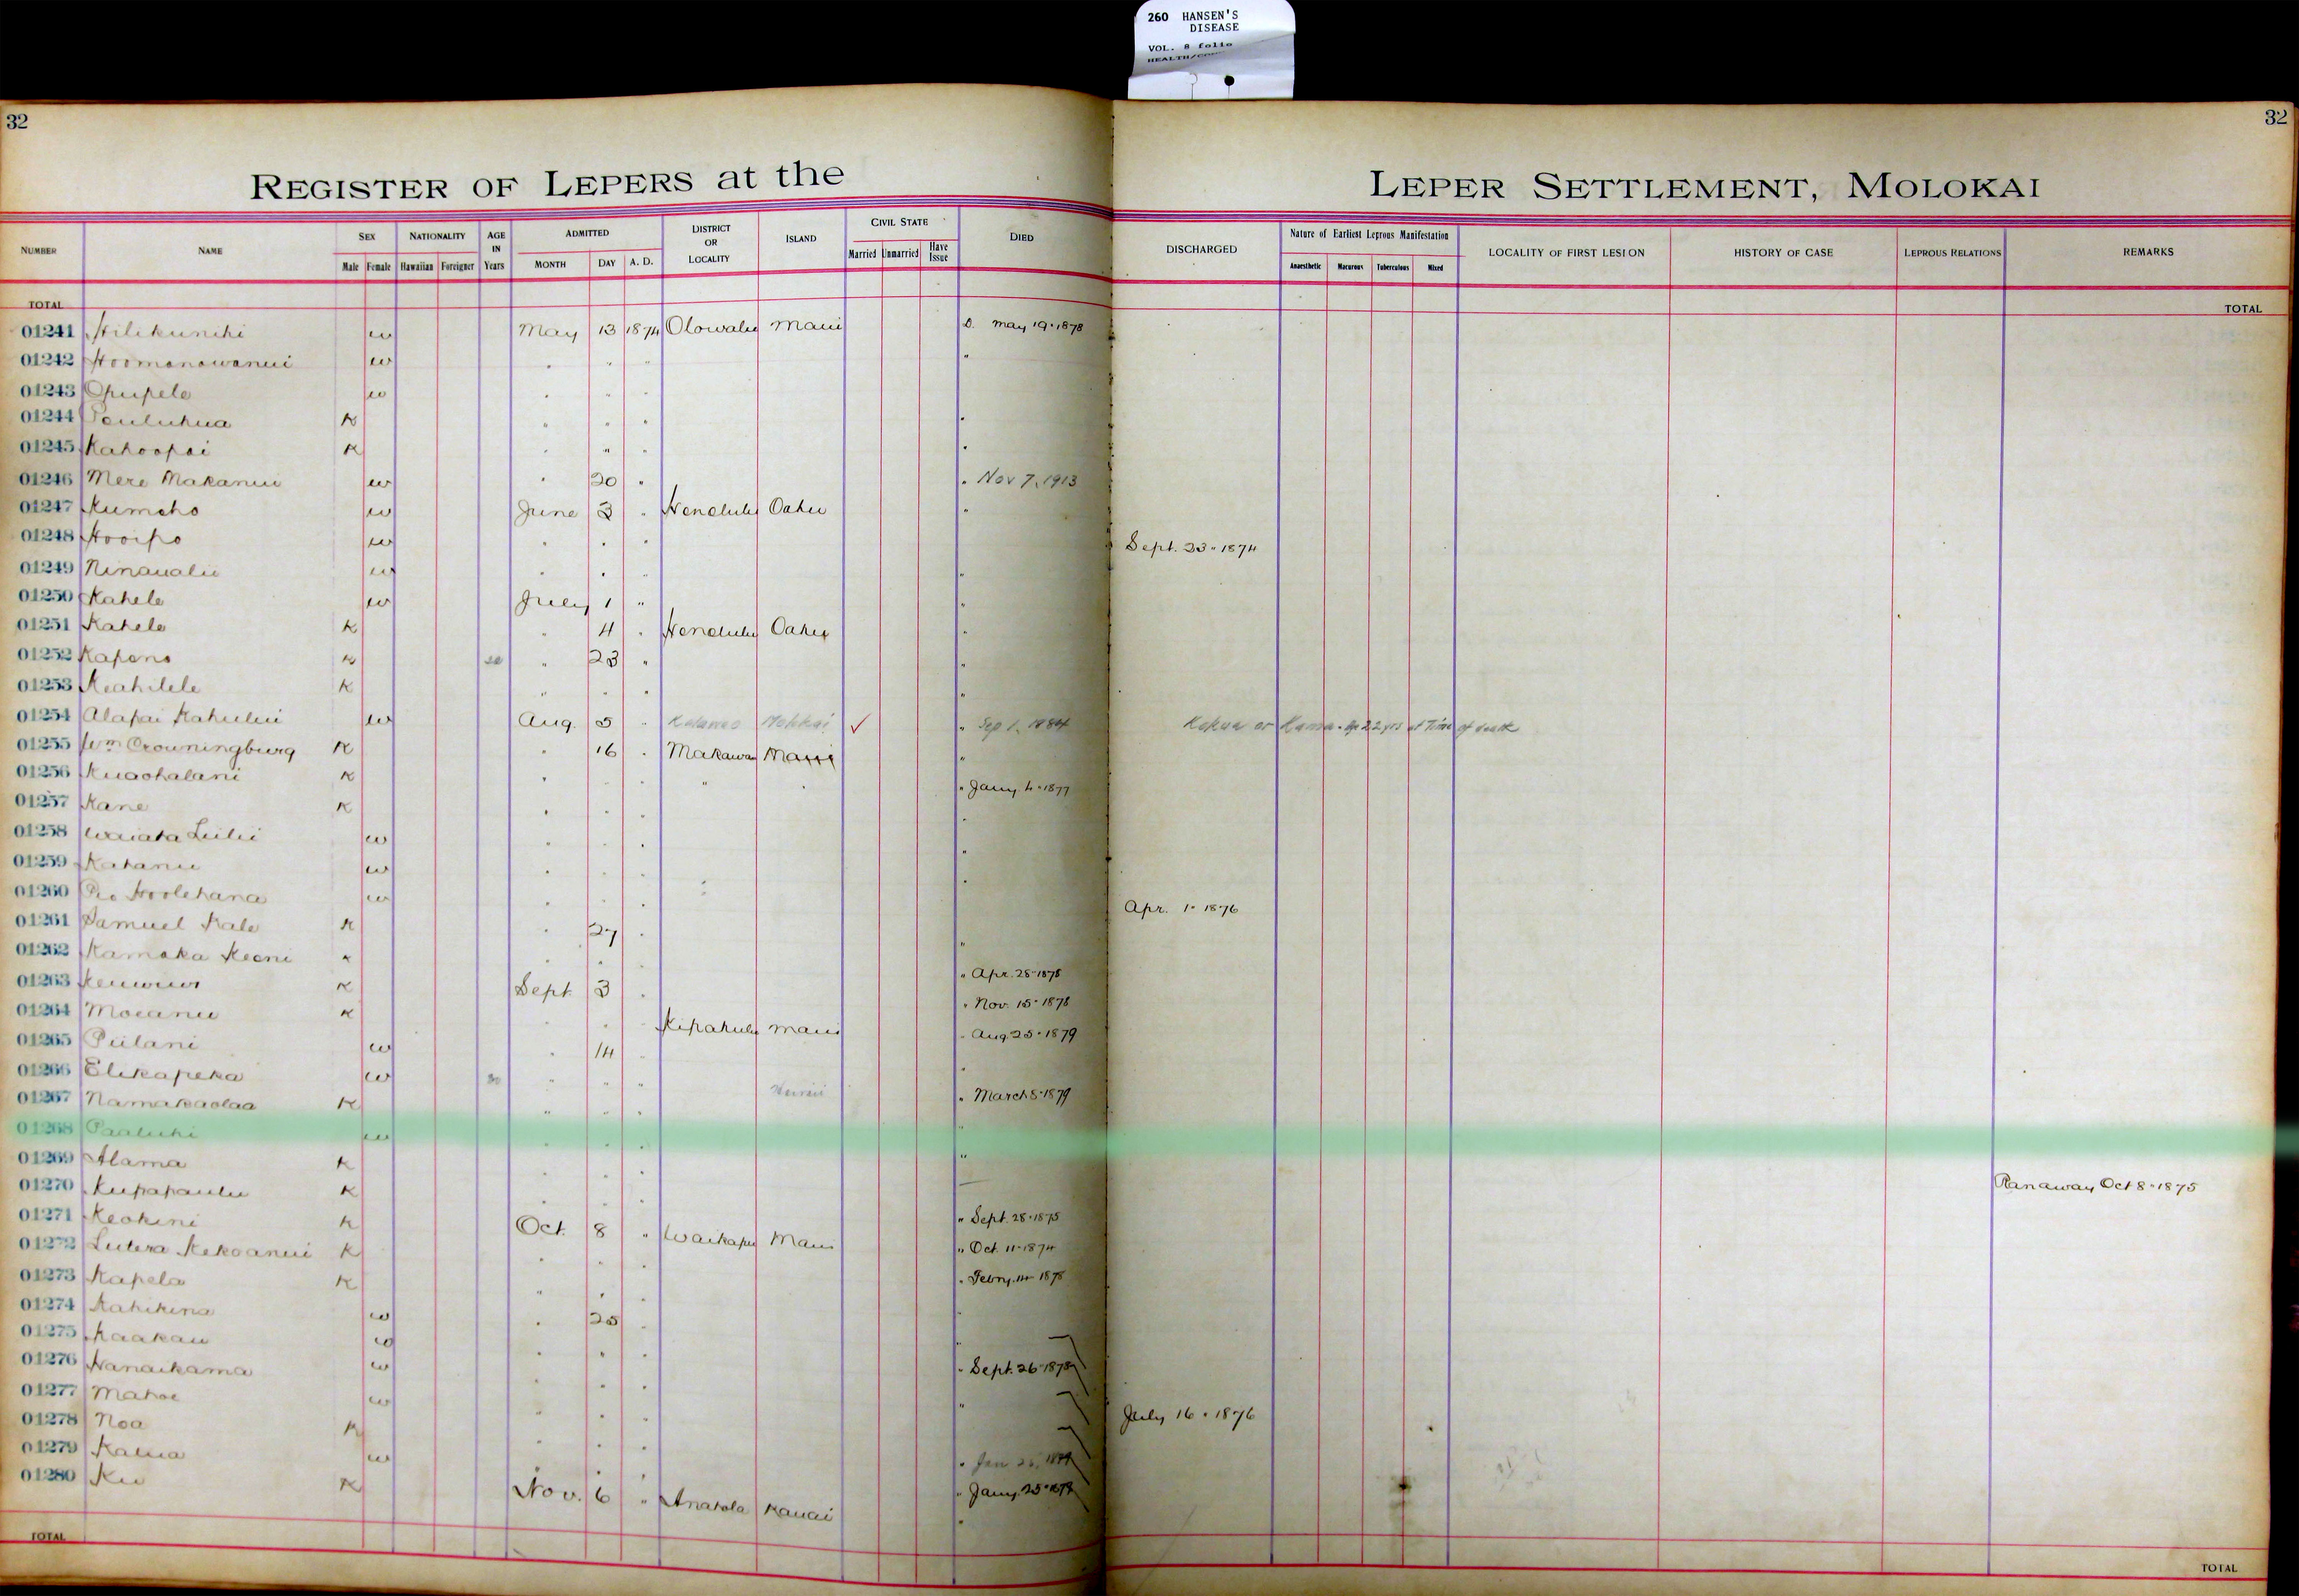 260 HANSEN'S
DISEASE
VOL. 8 folio
32 32
REGISTER OF LEPERS at the LEPER SETTLEMENT, MOLOKAI
NUMBER NAME SEX Male Female NATIONALITY Hawaiian Foreigner AGE IN Years ADMITTED MONTH DAY A. D. DISTRICT OR LOCALITY ISLAND CIVIL STATE Married Unmarried Have Issue DIED DISCHARGED Nature of Earliest Leprous Manifestation Anaesthetic Macurous Tuberculous Mixed LOCALITY OF FIRST LESION HISTORY OF CASE LEPROUS RELATIONS REMARKS
TOTAL TOTAL
01241 Hilikunihi w May 13 1874 Olowalu Maui D. May 19 · 1878
01242 Hoomanawanui w " " " "
01243 Opupele w " " "
01244 Pauluhua K " " " "
01245 Kahoopai K " " " "
01246 Mere Makanui w " 20 " " Nov 7, 1913
01247 Kumeho w June 3 " Honolulu Oahu "
01248 Hooipo w " " " Sept. 23 · 1874
01249 Ninaualii w " " " "
01250 Kahele w July 1 " "
01251 Kahele K " 4 " Honolulu Oahu "
01252 Kapena K " 23 " "
01253 Keahilele K " " " "
01254 Alapai Kahului w Aug. 5 " Kalawao Molokai ✓ " Sep 1, 1884 Kokua or Kamaa. Age 22 yrs at Time of death
01255 Wm Crowningburg K " 16 " Makawao Maui "
01256 Kuaohalani K " " " " " " Jany. 4 · 1877
01257 Kane K " " " "
01258 Waiata Luilii w " " " "
01259 Kahanu w " " " "
01260 Pio Hoolehana w " " " Apr. 1 · 1876
01261 Samuel Kale K " 27 " "
01262 Kamaka Keoni K " " " " Apr. 28 · 1878
01263 K Sept 3 " " Nov. 15 · 1878
01264 Moeanu K " " " Kipahulu Maui " Aug 25 · 1879
01265 Piilani w " 14 " "
01266 Elikapeka w 30 " " " Hawaii " March 8 · 1879
01267 Namakaolaa K " " " "
01268 Paaluhi w " " "
01269 Alama K " " "
01270 Kupapaulu K " " " Ranaway Oct 8 · 1875
01271 Keokini K Oct. 8 " Waikapu Maui " Sept. 28 · 1875
01272 Lutera Kekoanui K " " " " Oct. 11 · 1874
01273 Kapela K " " " " Febry. 14 · 1878
01274 Kahikina w " 25 " "
01275 Kaakau w " " " "
01276 Nanaikama w " " " " Sept. 26 · 1878
01277 Mahoe w " " " "
01278 Noa K " " " July 16 · 1876
01279 Kalua w " " " " Jan 26,
01280 Ku K Nov. 6 " Anahola Kauai " Jany. 25 ·
TOTAL TOTAL